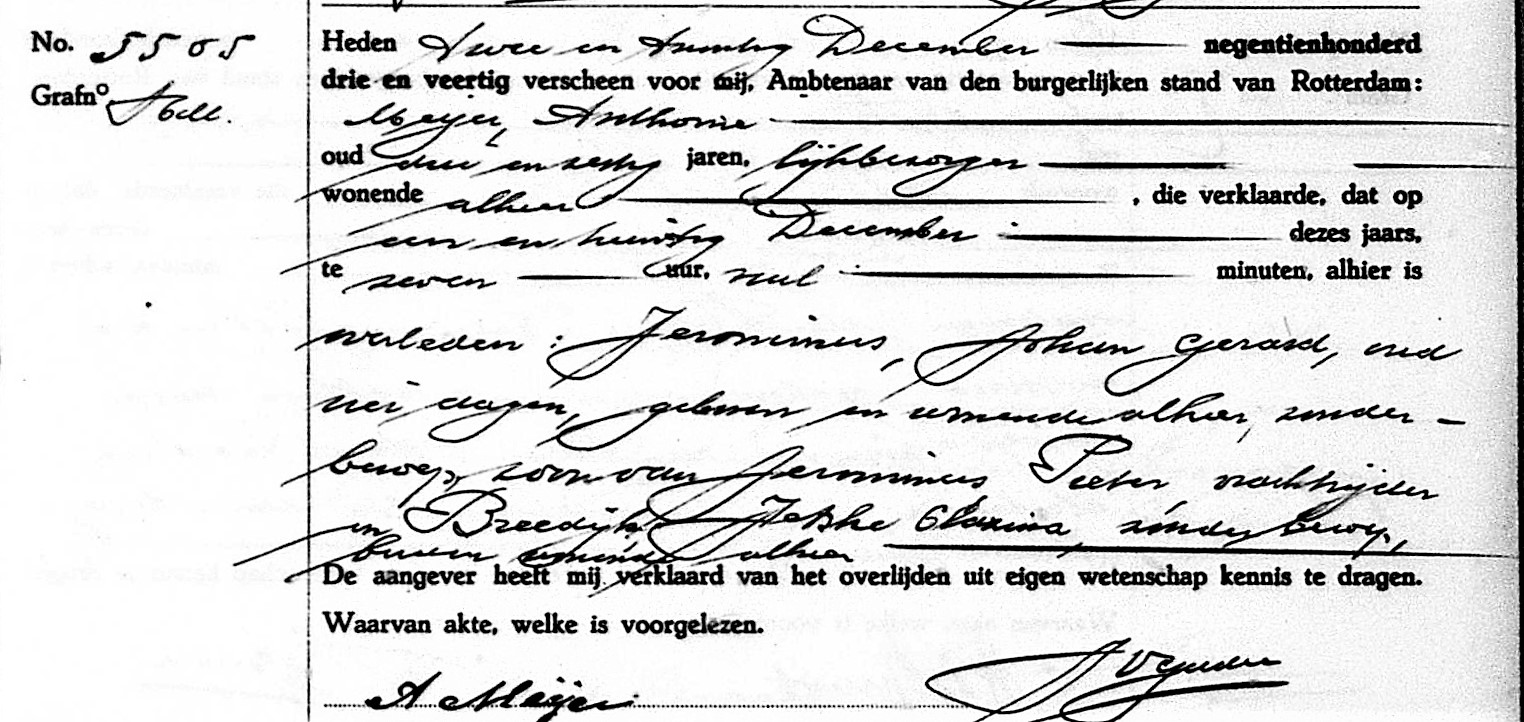 No. 5505
Heden twee en twintig December negentienhonderd
drie en veertig verscheen voor mij, Ambtenaar van den burgerlijken stand van Rotterdam:
Grafn°
Meijer, Anthonie
oud drie en zestig jaren, lijkbezorger
wonende alhier , die verklaarde, dat op
een en twintig December dezes jaars,
te zeven uur, nul minuten, alhier is
overleden: Jeronimus, Johan Gerard, oud
dagen, geboren en wonende alhier, zonder-
beroep, zoon van Jeronimus Pieter, vrachtrijder
en Breedijk, Jikke Clasina, zonder beroep,
beiden wonende alhier
De aangever heeft mij verklaard van het overlijden uit eigen wetenschap kennis te dragen.
Waarvan akte, welke is voorgelezen.
A Meijer